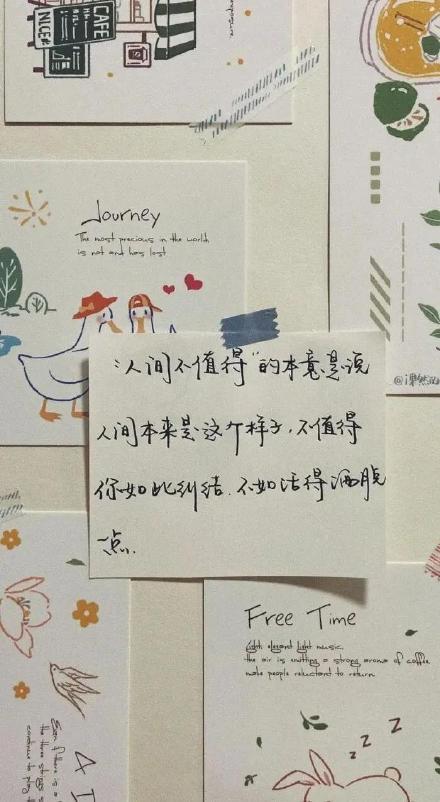 CAFE
NICE
Journey
The most precious in the world
is not and has lost
“人间不值得”的本意是说
人间本来是这个样子，不值得
你如此纠结．不如活得洒脱
一点．
Free Time
Light elegant light music.
the air is emitting a strong aroma of coffee
make people reluctant to return
z z z